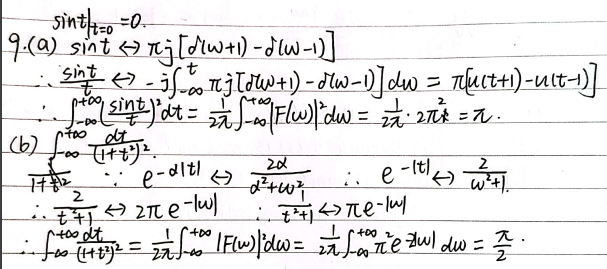 sint|t=0 =0.
9.(a) sint ↔ πj[δ(ω+1)-δ(ω-1)]
∴ sint/t ↔ -j∫_{-∞}^{t} πj[δ(ω+1)-δ(ω-1)]dω = π[u(t+1)-u(t-1)]
∴ ∫_{-∞}^{+∞}(sint/t)²dt = 1/2π ∫_{-∞}^{+∞}|F(ω)|²dω = 1/2π · 2π² = π.
(b) ∫_{-∞}^{+∞} dt/(1+t²)².
1/1+t² ∵ e^{-α|t|} ↔ 2α/α²+ω² ∴ e^{-|t|} ↔ 2/ω²+1.
∴ 2/t²+1 ↔ 2πe^{-|ω|} ∴ 1/t²+1 ↔ πe^{-|ω|}
∴ ∫_{-∞}^{+∞} dt/(1+t²)² = 1/2π ∫_{-∞}^{+∞} |F(ω)|²dω = 1/2π ∫_{-∞}^{+∞} π²e^{-2|ω|} dω = π/2.